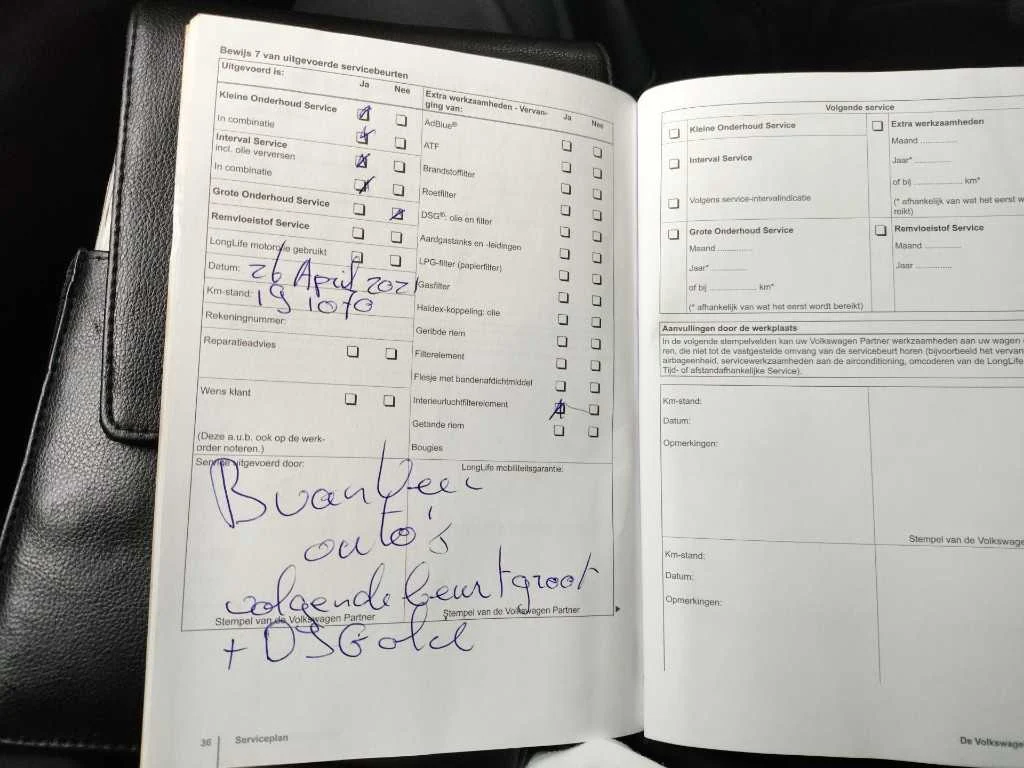 Bewijs 7 van uitgevoerde servicebeurten
Uitgevoerd is:
Ja
Nee
Kleine Onderhoud Service
In combinatie
Interval Service
incl. olie verversen
In combinatie
Grote Onderhoud Service
Remvloeistof Service
LongLife motorolie gebruikt
Datum: 26 April 2021
Km-stand: 191070
Rekeningnummer:
Reparatieadvies
Wens klant
(Deze a.u.b. ook op de werk-
order noteren.)
Extra werkzaamheden - Vervan-
ging van:
Ja
Nee
AdBlue®
ATF
Brandstoffilter
Roetfilter
DSG®: olie en filter
Aardgastanks en -leidingen
LPG-filter (papierfilter)
Gasfilter
Haldex-koppeling: olie
Geribde riem
Filterelement
Flesje met bandenafdichtmiddel
Interieurluchtfilterelement
Getande riem
Bougies
Service uitgevoerd door:
LongLife mobiliteitsgarantie:
B van
auto's
volgende beurt groot
Stempel van de Volkswagen Partner
Stempel van de Volkswagen Partner
+ DSG
36
Serviceplan
Volgende service
Kleine Onderhoud Service
Interval Service
Volgens service-intervalindicatie
Extra werkzaamheden
Maand ..............
Jaar* ..............
of bij .................. km*
(* afhankelijk van wat het eerst w
reikt)
Grote Onderhoud Service
Maand .............
Jaar* .............
of bij ................. km*
(* afhankelijk van wat het eerst wordt bereikt)
Remvloeistof Service
Maand ..............
Jaar ..............
Aanvullingen door de werkplaats
In de volgende stempelvelden kan uw Volkswagen Partner werkzaamheden aan uw wagen
ren, die niet tot de vastgestelde omvang van de servicebeurt horen (bijvoorbeeld het vervan
airbageenheid, servicewerkzaamheden aan de airconditioning, omcoderen van de LongLife
Tijd- of afstandafhankelijke Service).
Km-stand:
Datum:
Opmerkingen:
Stempel van de Volkswagen
Km-stand:
Datum:
Opmerkingen:
De Volkswagen